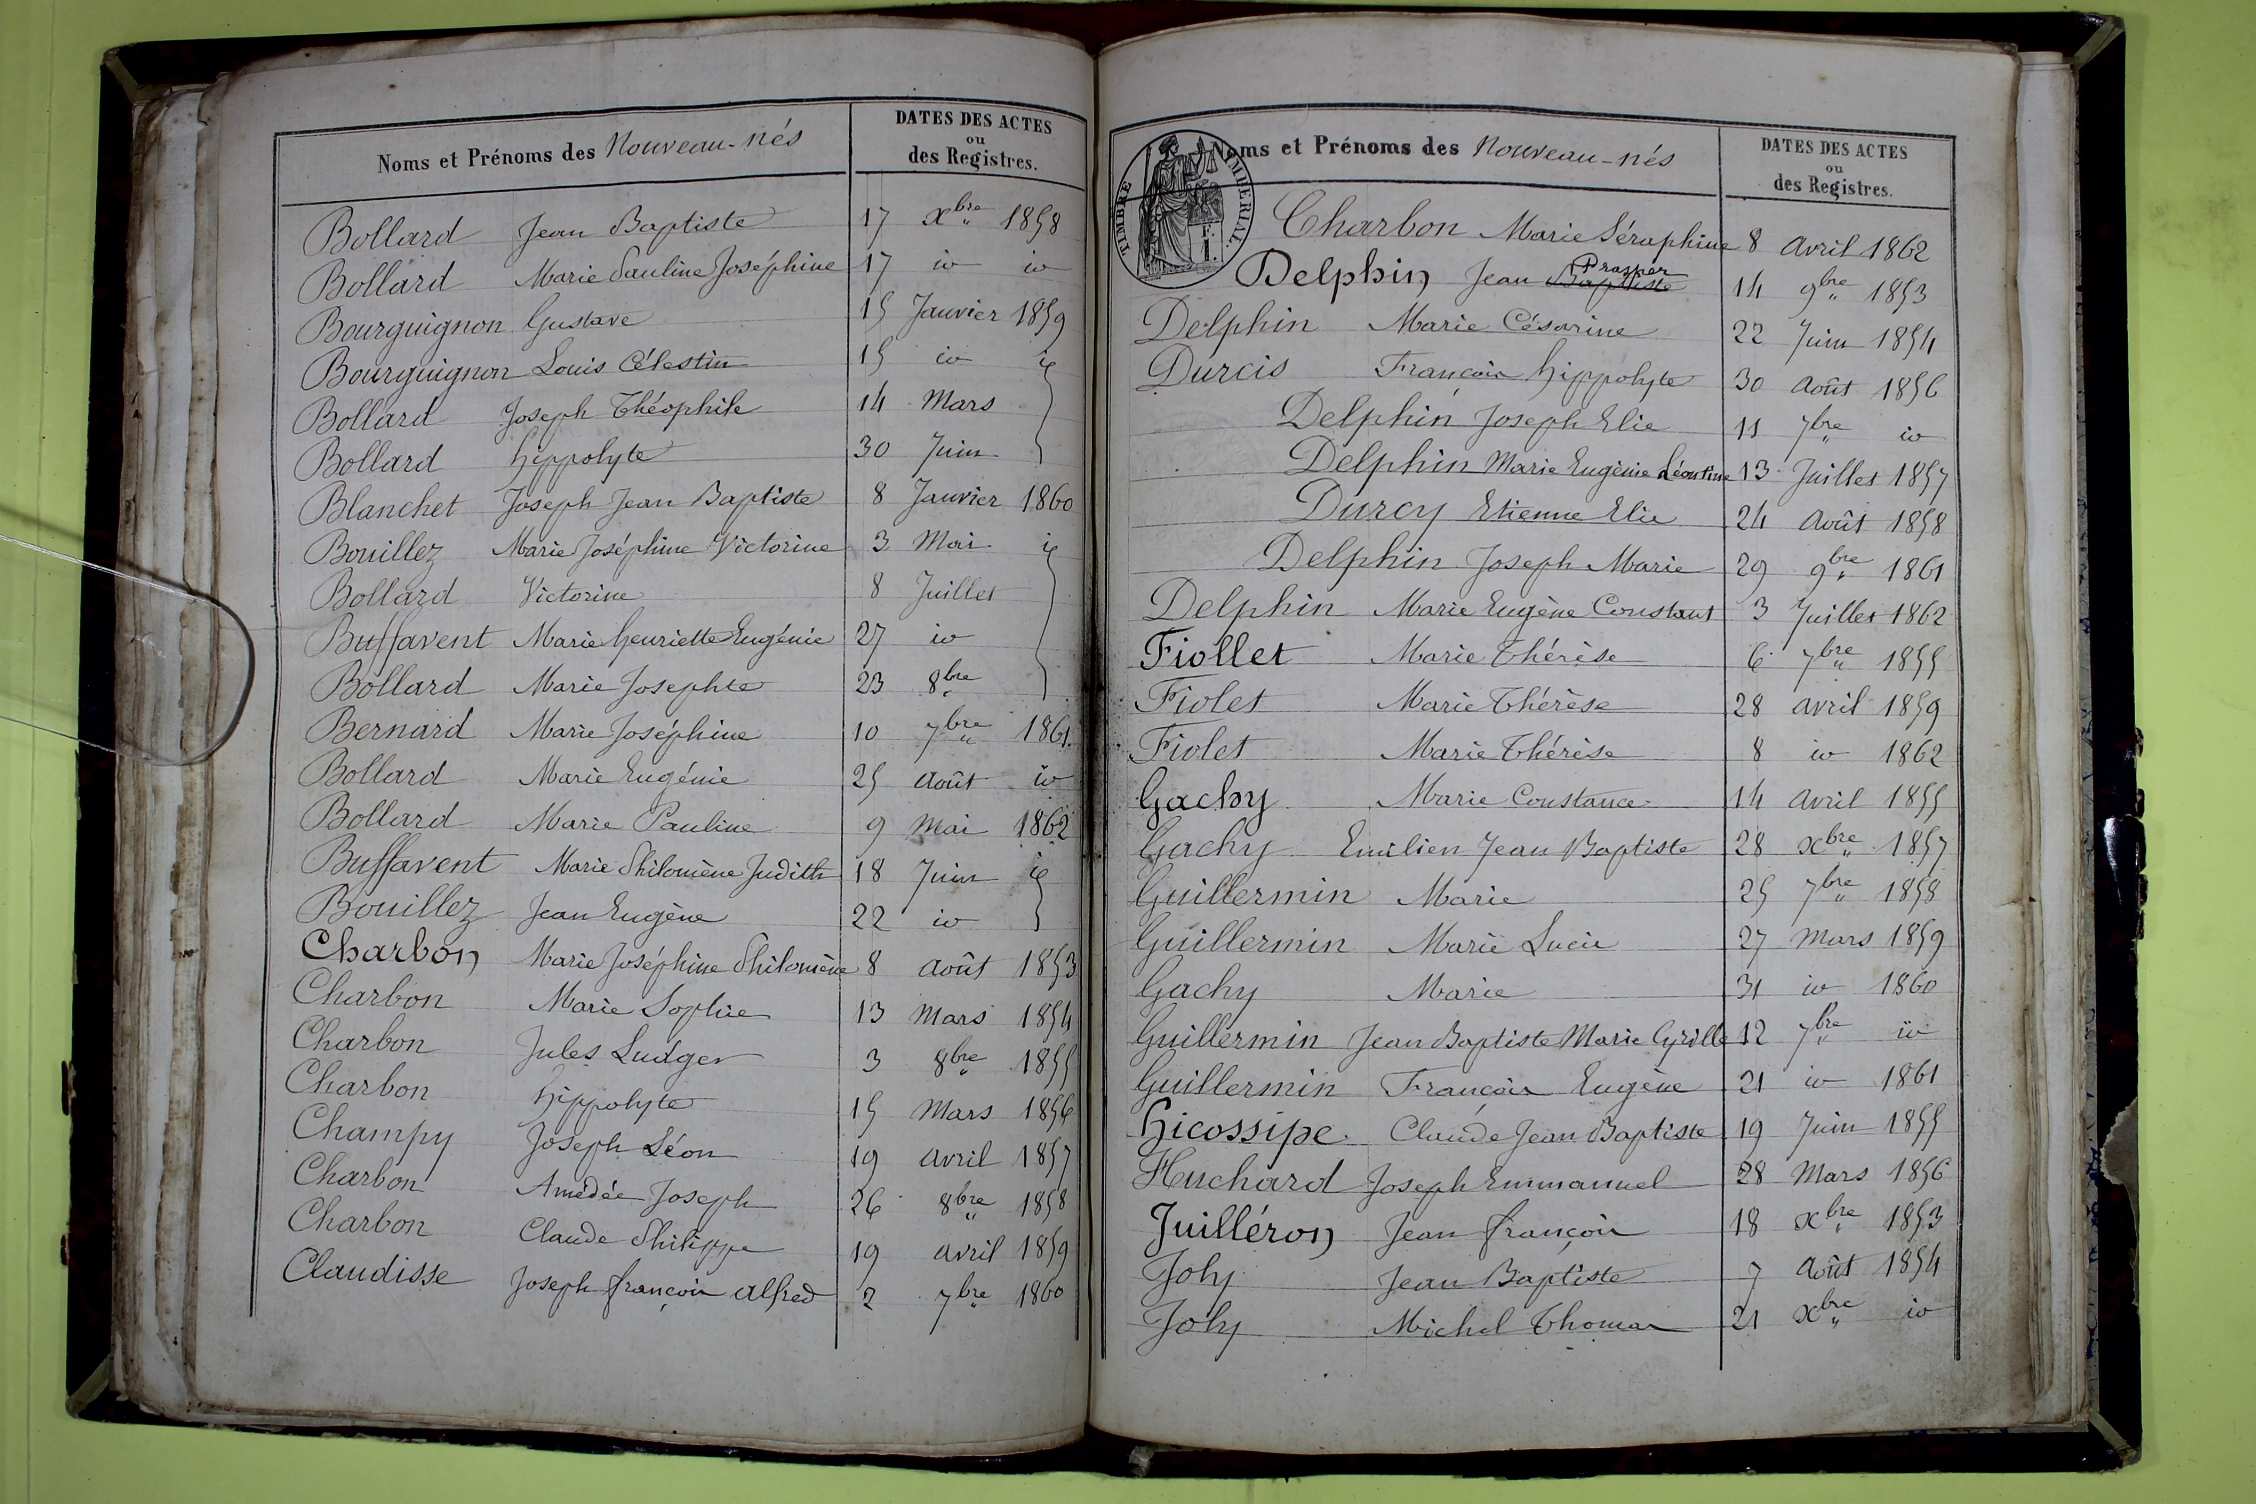 Noms et Prénoms des Nouveau-nés
DATES DES ACTES
ou
des Registres.
Bollard Jean Baptiste 17 xbre 1858
Bollard Marie Pauline Joséphine 17 id id
Bourguignon Gustave 15 Janvier 1859
Bourguignon Louis Célestin 15 id id
Bollard Joseph Théophile 14 Mars
Bollard hippolyte 30 Juin
Blanchet Joseph Jean Baptiste 8 Janvier 1860
Bouillez Marie Joséphine Victorine 3 Mai id
Bollard Victorine 8 Juillet
Buffavent Marie henriette Eugénie 27 id
Bollard Marie Josephte 23 8bre
Bernard Marie Joséphine 10 7bre 1861
Bollard Marie Eugénie 25 Août id
Bollard Marie Pauline 9 Mai 1862
Buffavent Marie Philomène Judith 18 Juin id
Bouillez Jean Eugène 22 id
Charbon Marie Joséphine Philomène 8 août 1853
Charbon Marie Sophie 13 Mars 1854
Charbon Jules Ludger 3 8bre 1855
Charbon hippolyte 15 Mars 1856
Champy Joseph Léon 19 avril 1857
Charbon Amédée Joseph 26 8bre 1858
Charbon Claude Philippe 19 avril 1859
Claudisse Joseph françois alfred 2 7bre 1860
TIMBRE IMPERIAL.
Noms et Prénoms des Nouveau-nés
DATES DES ACTES
ou
des Registres.
Charbon Marie Séraphine 8 avril 1862
Prosper
Delphin Jean Baptiste 14 9bre 1853
Delphin Marie Césarine 22 Juin 1854
Durcis François hippolyte 30 août 1856
Delphin Joseph Elie 11 7bre id
Delphin Marie Eugènie Léontine 13 Juillet 1857
Durcy Etienne Elie 24 Août 1858
Delphin Joseph Marie 29 9bre 1861
Delphin Marie Eugène Constant 3 Juillet 1862
Fiollet Marie Thérèse 6 7bre 1855
Fiolet Marie Thérèse 28 avril 1859
Fiolet Marie Thérèse 8 id 1862
Gachy Marie Constance 14 avril 1855
Gachy Emilien Jean Baptiste 28 xbre 1857
Guillermin Marie 25 7bre 1858
Guillermin Marie Lucie 27 Mars 1859
Gachy Marie 31 id 1860
Guillermin Jean Baptiste Marie Cyrille 12 7bre id
Guillermin François Eugène 21 id 1861
hicossipe Claude Jean Baptiste 19 Juin 1855
Huchard Joseph Emmanuel 28 Mars 1856
Juilléron Jean françois 18 xbre 1853
Joly Jean Baptiste 7 Août 1854
Joly Michel Thomas 21 xbre id